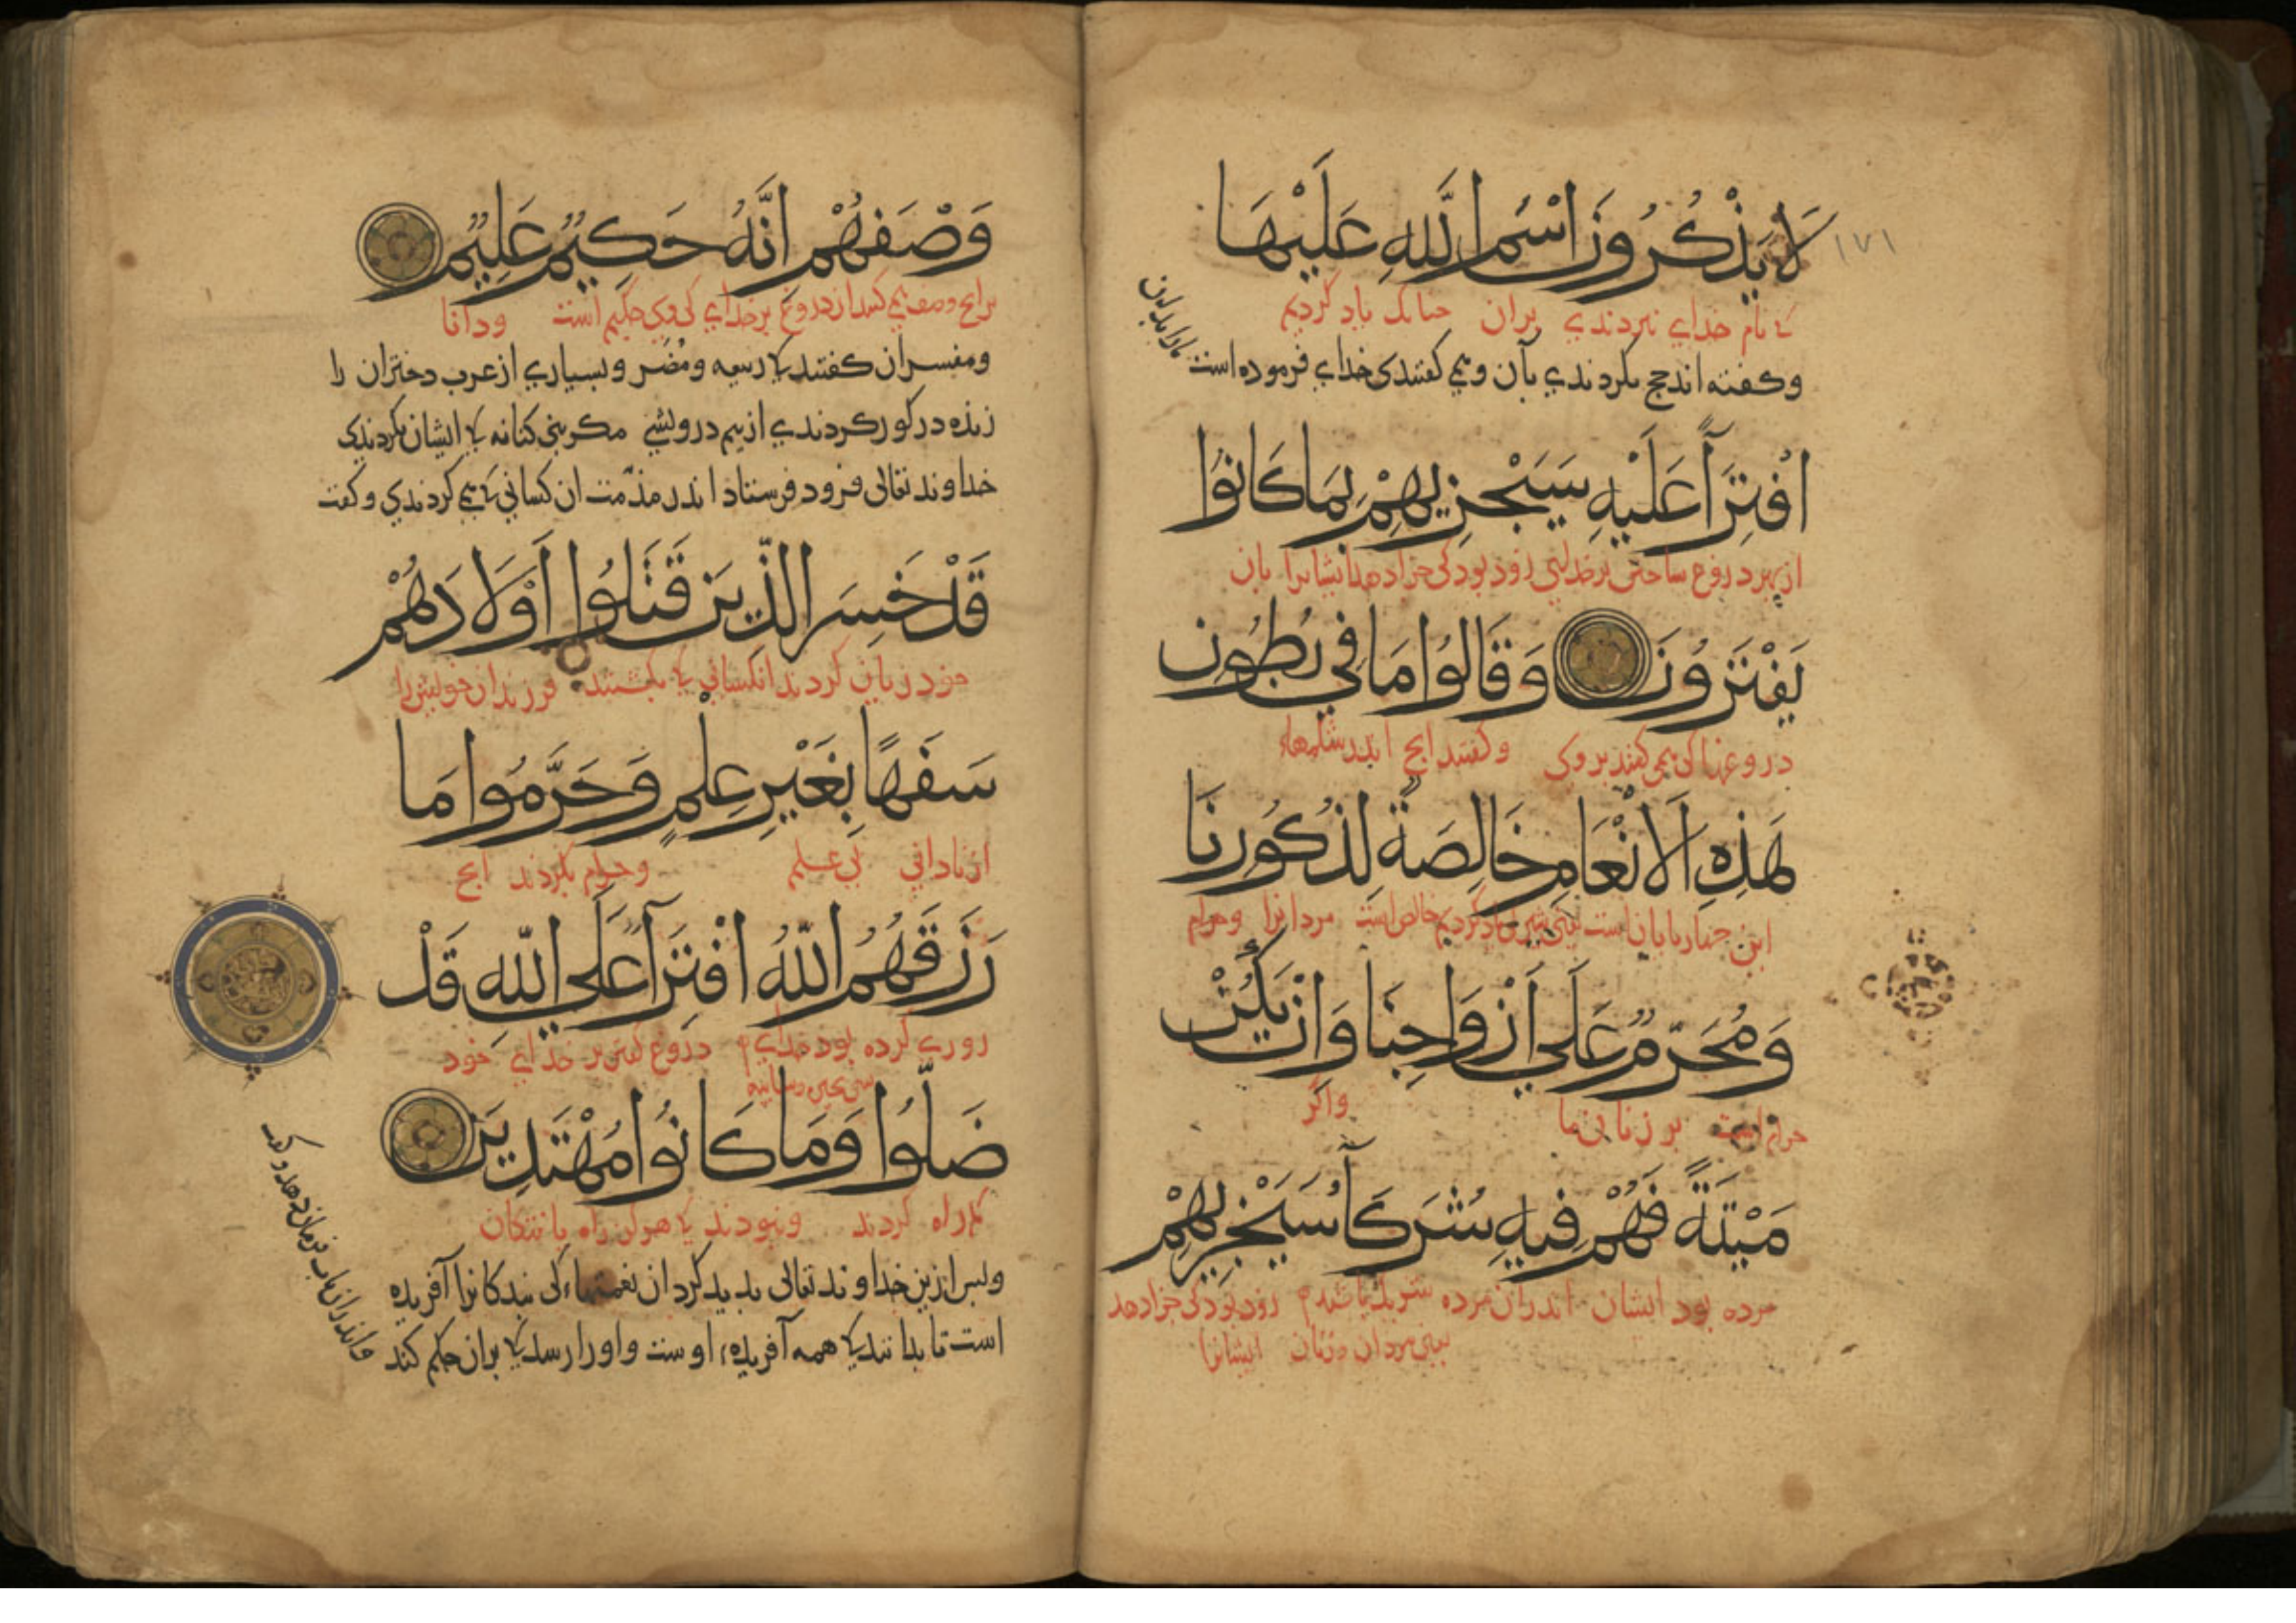 ١٧١
لَا يَذْكُرُونَ اسْمَ اللَّهِ عَلَيْهَا
نام خدای نبردندی بران یاد کردیم
وكفته اند حج نكردندي بآن و كفتندی خداي فرموده است
مارا بدين
افْتِرَآءً عَلَيْهِ سَيَجْزِيهِمْ بِمَا كَانُوا
از بهر دروغ ساختن بر خدای زود بود کی جزا دهد ایشانرا بان
يَفْتَرُونَ وَقَالُوا مَا فِي بُطُونِ
دروغها کی می کفتند بروی وکفتند انج اندر شکمهاء
هَذِهِ الْأَنْعَامِ خَالِصَةٌ لِذُكُورِنَا
این جهاربایان است خالص است مردانرا وحرام
وَمُحَرَّمٌ عَلَى أَزْوَاجِنَا وَإِنْ يَكُنْ
حرام است بر زنان ما واکر
مَيْتَةً فَهُمْ فِيهِ شُرَكَآءُ سَيَجْزِيهِمْ
مرده بود ایشان اندران مرده شریک باشند زود بود کی جزا دهد
یعنی مردان وزنان ایشانرا
وَصْفَهُمْ إِنَّهُ حَكِيمٌ عَلِيمٌ
بر انج وصف می کنند از دروغ بر خدای کی وی حکیم است ودانا
ومفسران كفتند ربيعه ومُضَر وبسياري از عرب دختران را
زنده در كور كردندي از بيم درويشي مكر بني كنانه ايشان نكردندی
خداوند تعالى فرود فرستاد اندر مذمّت ان كساني مي كردندي وكفت
قَدْ خَسِرَ الَّذِينَ قَتَلُوا أَوْلَادَهُمْ
خود زیان کردند انکسانی بکشتند فرزندان خویش را
سَفَهًا بِغَيْرِ عِلْمٍ وَحَرَّمُوا مَا
از نادانی بی علم وحرام بکردند انج
رَزَقَهُمُ اللَّهُ افْتِرَآءً عَلَى اللَّهِ قَدْ
روزی کرده بود خدای دروغ کفتن بر خدای خود
ضَلُّوا وَمَا كَانُوا مُهْتَدِينَ
کم راه کردند ونبودند هرکز راه یافتکان
وپس ازين خداوند تعالى بديد كرد ان نعمتهاء كی بندكانرا آفريده
است تا بدانند همه آفريدهء اوست واورا رسد بران حكم كند
واندران باب فرمان دهد وكفت